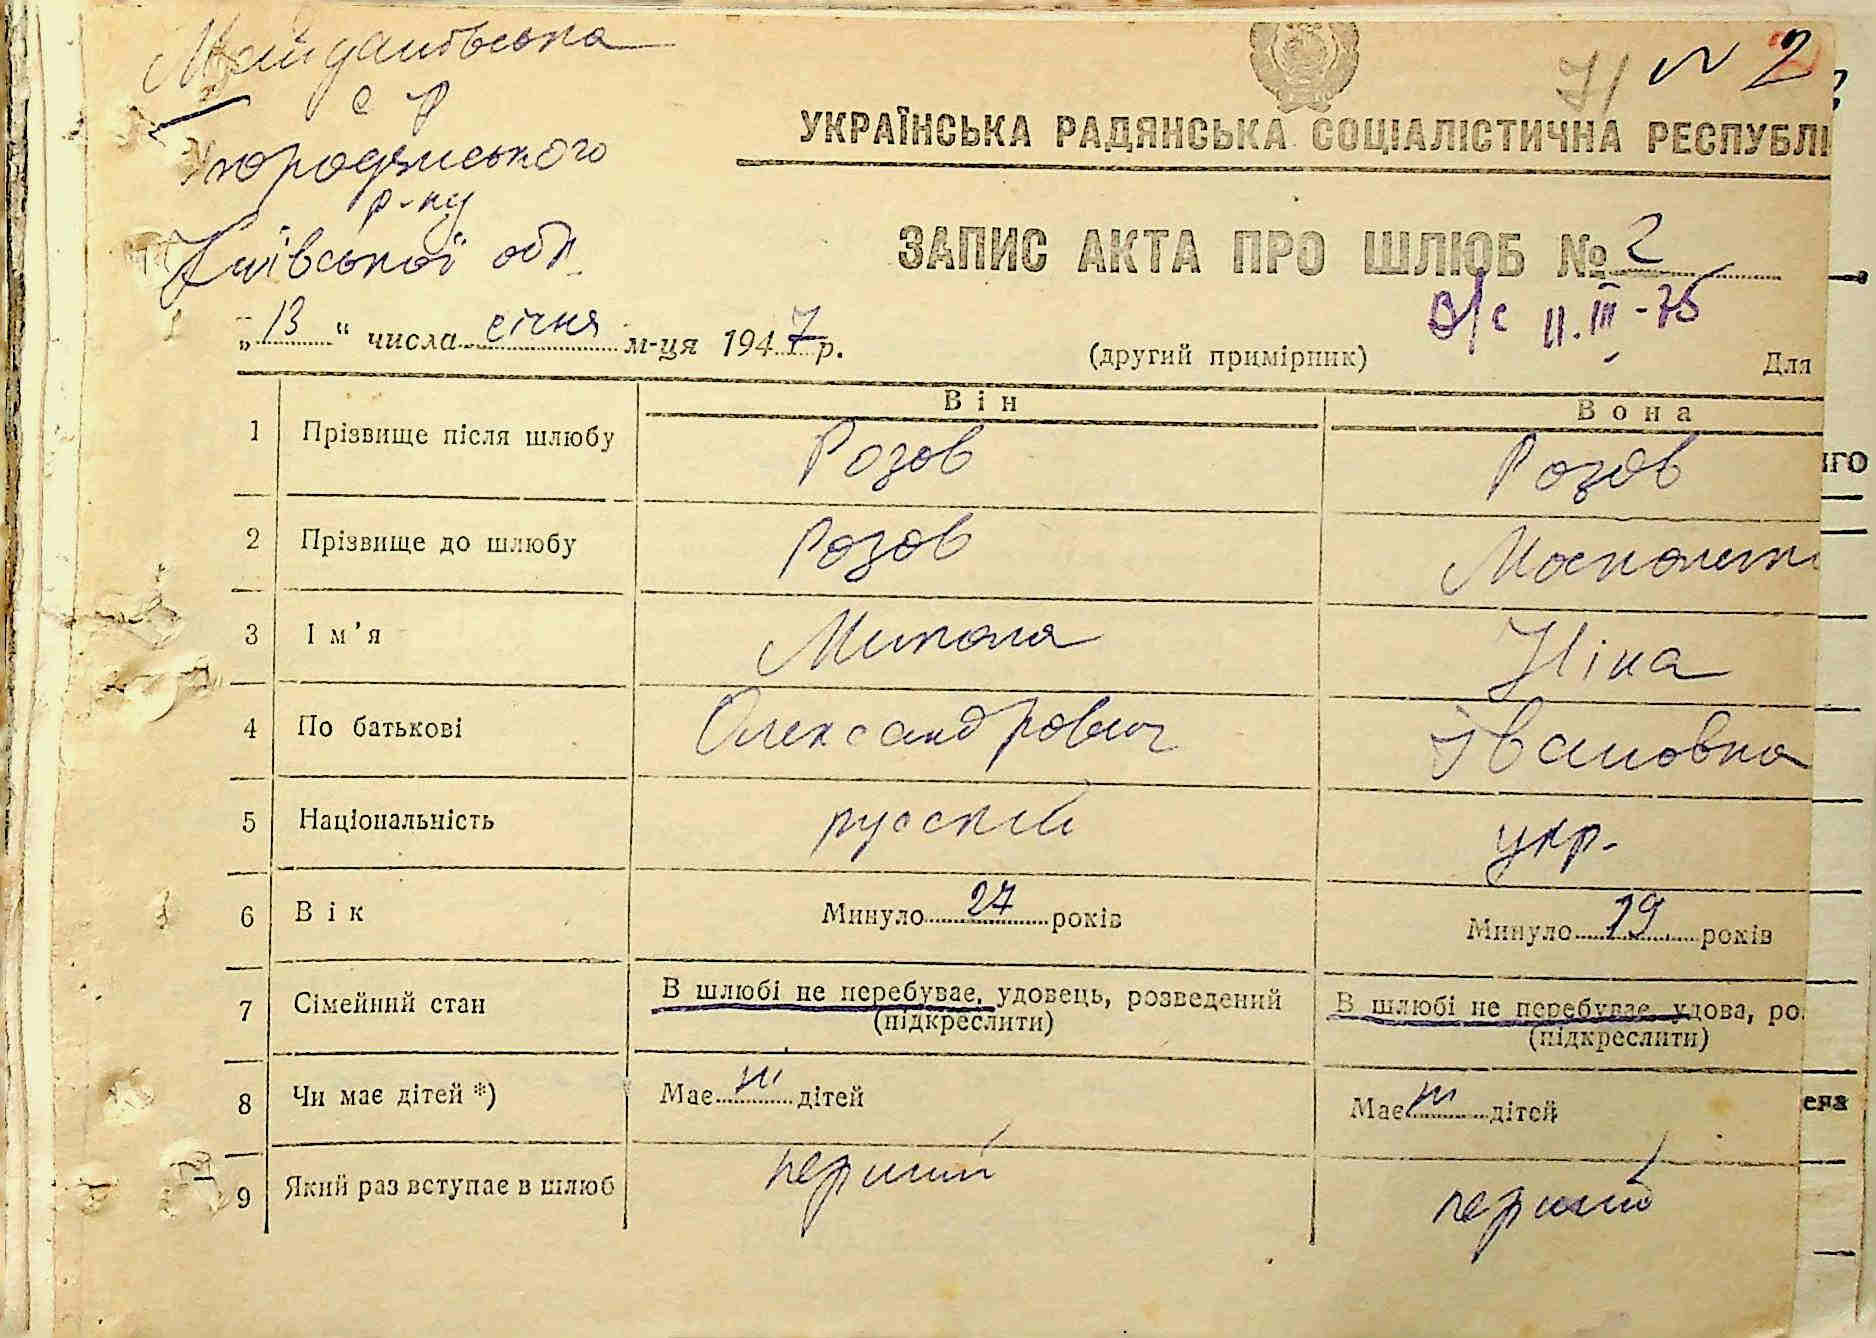 Майданівська
с р
Бородянського
р-ну
Київської обл.
№ 2
УКРАЇНСЬКА РАДЯНСЬКА СОЦІАЛІСТИЧНА РЕСПУБЛІ
ЗАПИС АКТА ПРО ШЛЮБ № 2
в/с 11.III-75
„13“ числа січня м-ця 1947 р.
(другий примірник)
Для
Він
Вона
1 Прізвище після шлюбу Розов Розов
2 Прізвище до шлюбу Розов
3 Ім’я Микола Ніна
4 По батькові Олександрович Івановна
5 Національність русский укр.
6 Вік Минуло 27 років Минуло 19 років
7 Сімейний стан В шлюбі не перебуває, удовець, розведений В шлюбі не перебуває, удова, роз
(підкреслити) (підкреслити)
8 Чи має дітей *) Має ні дітей Має ні дітей
9 Який раз вступає в шлюб перший перший